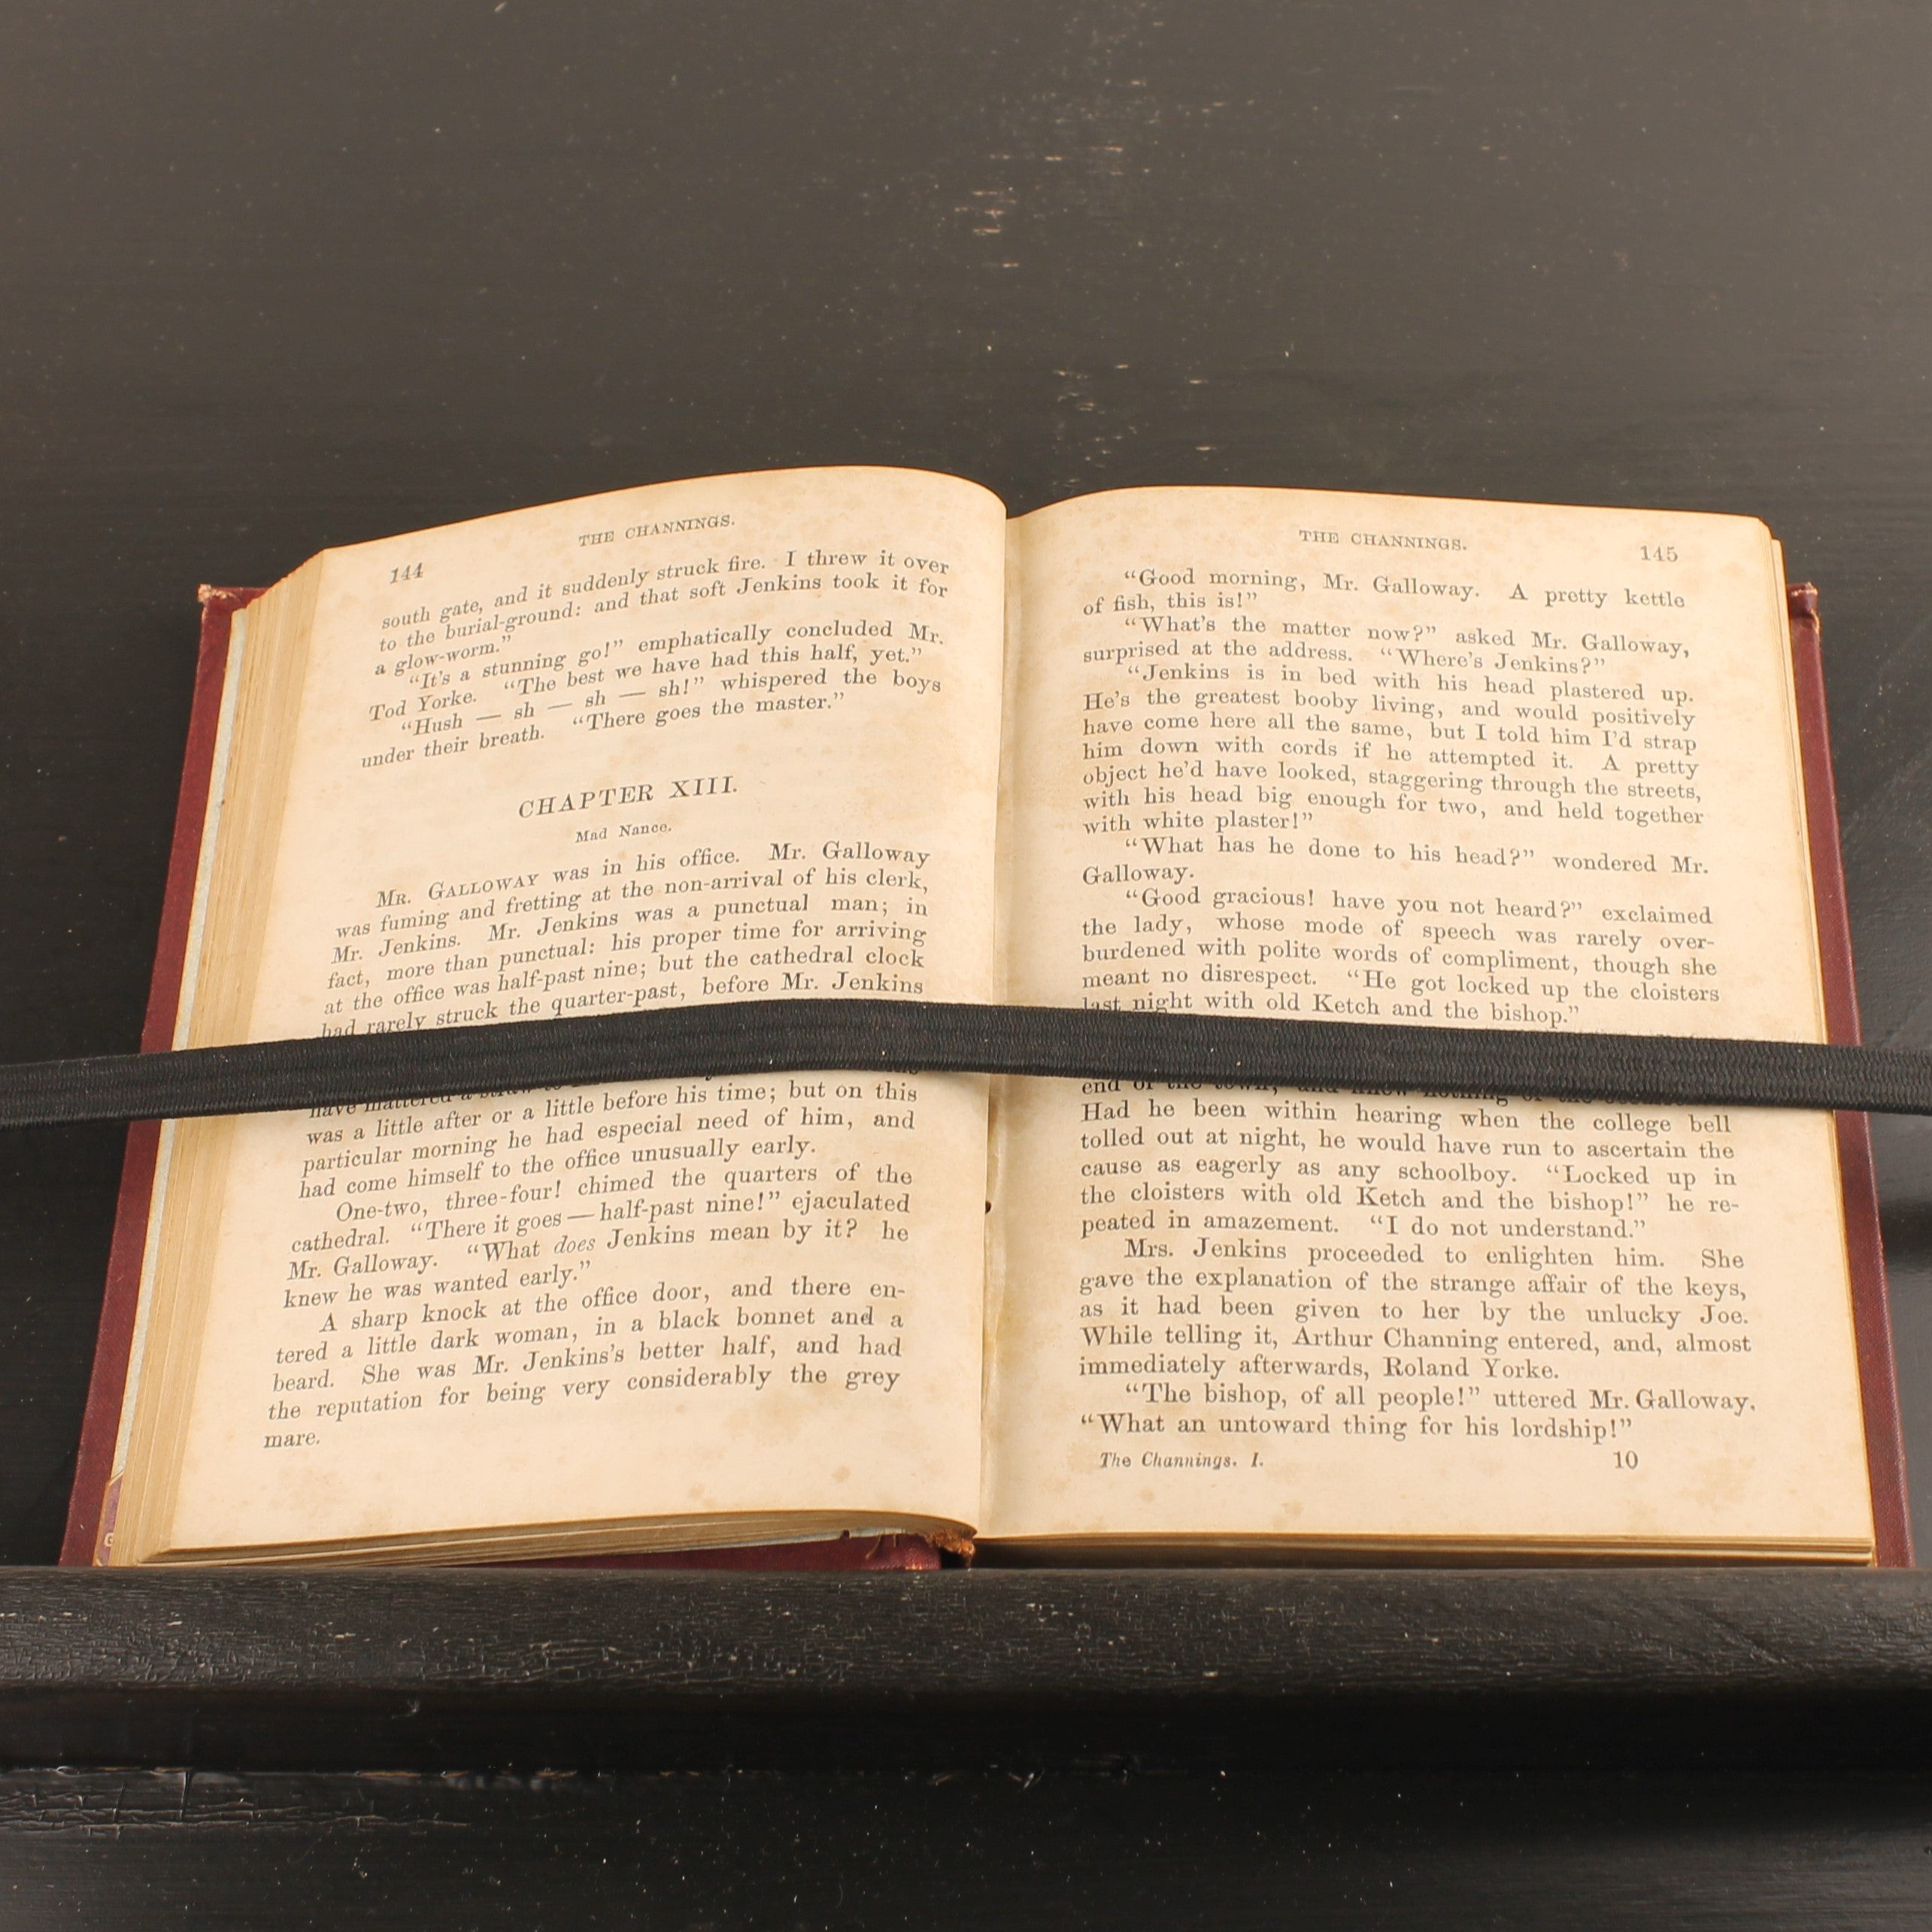 144
THE CHANNINGS.
south gate, and it suddenly struck fire. I threw it over
to the burial-ground: and that soft Jenkins took it for
a glow-worm.”
“It's a stunning go!” emphatically concluded Mr.
Tod Yorke. “The best we have had this half, yet.”
“Hush — sh — sh — sh!” whispered the boys
under their breath. “There goes the master.”
CHAPTER XIII.
Mad Nance.
MR. GALLOWAY was in his office. Mr. Galloway
was fuming and fretting at the non-arrival of his clerk,
Mr. Jenkins. Mr. Jenkins was a punctual man; in
fact, more than punctual: his proper time for arriving
at the office was half-past nine; but the cathedral clock
had rarely struck the quarter-past, before Mr. Jenkins
have mattered a straw to
was a little after or a little before his time; but on this
particular morning he had especial need of him, and
had come himself to the office unusually early.
One-two, three-four! chimed the quarters of the
cathedral. “There it goes — half-past nine!” ejaculated
Mr. Galloway. “What does Jenkins mean by it? he
knew he was wanted early.”
A sharp knock at the office door, and there en-
tered a little dark woman, in a black bonnet and a
beard. She was Mr. Jenkins's better half, and had
the reputation for being very considerably the grey
mare.
THE CHANNINGS.
145
“Good morning, Mr. Galloway. A pretty kettle
of fish, this is!”
“What's the matter now?” asked Mr. Galloway,
surprised at the address. “Where's Jenkins?”
“Jenkins is in bed with his head plastered up.
He's the greatest booby living, and would positively
have come here all the same, but I told him I'd strap
him down with cords if he attempted it. A pretty
object he'd have looked, staggering through the streets,
with his head big enough for two, and held together
with white plaster!”
“What has he done to his head?” wondered Mr.
Galloway.
“Good gracious! have you not heard?” exclaimed
the lady, whose mode of speech was rarely over-
burdened with polite words of compliment, though she
meant no disrespect. “He got locked up the cloisters
last night with old Ketch and the bishop.”
end of the town, and knew nothing of the
Had he been within hearing when the college bell
tolled out at night, he would have run to ascertain the
cause as eagerly as any schoolboy. “Locked up in
the cloisters with old Ketch and the bishop!” he re-
peated in amazement. “I do not understand.”
Mrs. Jenkins proceeded to enlighten him. She
gave the explanation of the strange affair of the keys,
as it had been given to her by the unlucky Joe.
While telling it, Arthur Channing entered, and, almost
immediately afterwards, Roland Yorke.
“The bishop, of all people!” uttered Mr. Galloway.
“What an untoward thing for his lordship!”
The Channings. I.
10